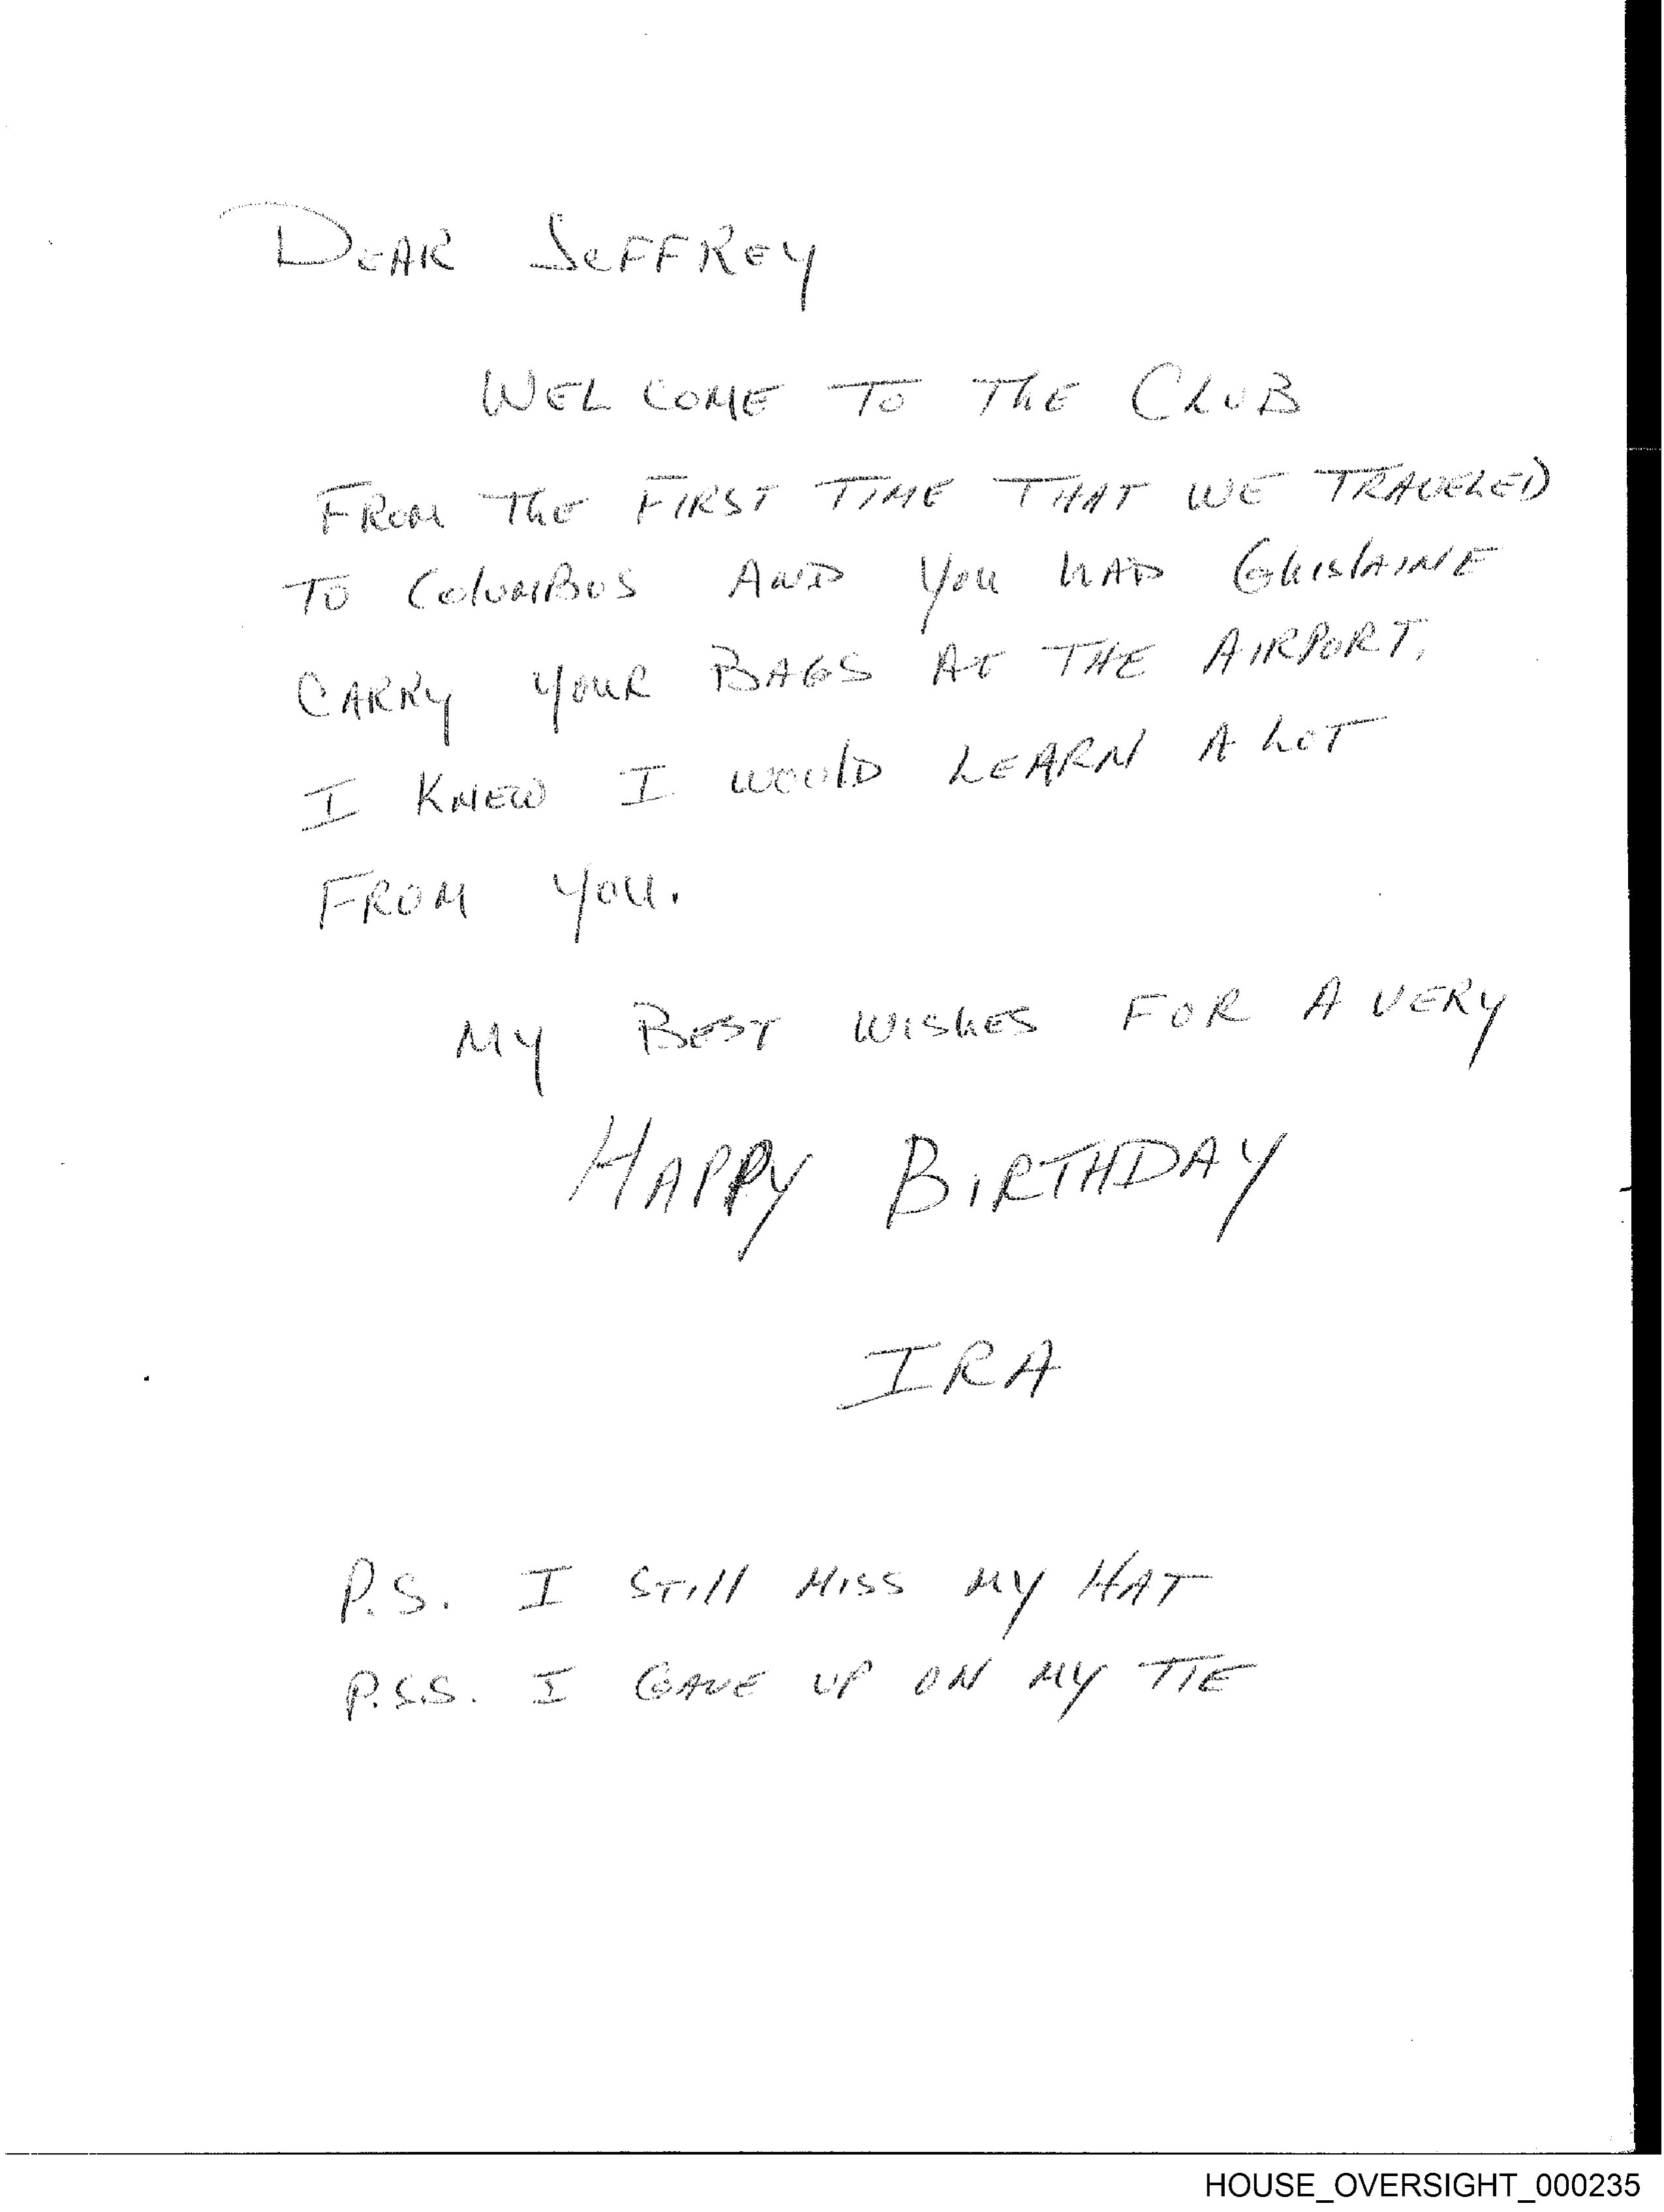 DEAR JEFFREY
WELCOME TO THE CLUB
FROM THE FIRST TIME THAT WE TRAVELED
TO COLUMBUS AND YOU HAD GHISLAINE
CARRY YOUR BAGS AT THE AIRPORT.
I KNEW I WOULD LEARN A LOT
FROM YOU.
MY BEST WISHES FOR A VERY
HAPPY BIRTHDAY
IRA
P.S. I STILL MISS MY HAT
P.S.S. I GAVE UP ON MY TIE
HOUSE_OVERSIGHT_000235